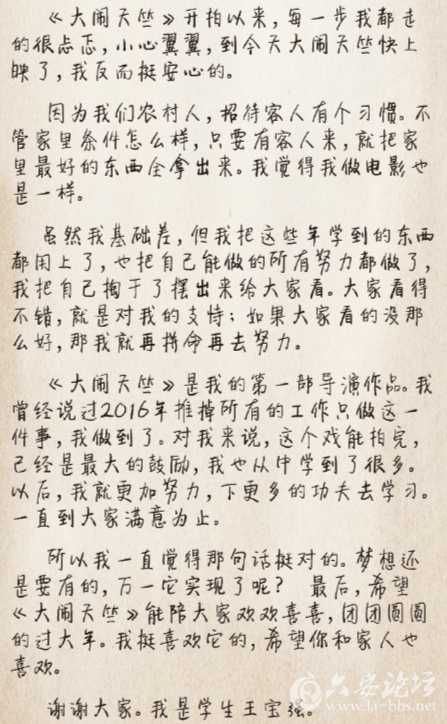 《大闹天竺》开拍以来，每一步我都走
的很忐忑，小心翼翼，到今天大闹天竺快上
映了，我反而挺安心的。
因为我们农村人，招待客人有个习惯。不
管家里条件怎么样，只要有客人来，就把家
里最好的东西全拿出来。我觉得我做电影也
是一样。
虽然我基础差，但我把这些年学到的东西
都用上了，也把自己能做的所有努力都做了，
我把自己掏干了摆出来给大家看。大家看得
不错，就是对我的支持；如果大家看的没那
么好，那我就再拼命再去努力。
《大闹天竺》是我的第一部导演作品。我
曾经说过2016年推掉所有的工作只做这一
件事，我做到了。对我来说，这个戏能拍完，
已经是最大的鼓励，我也从中学到了很多。
以后，我就更加努力，下更多的功夫去学习。
一直到大家满意为止。
所以我一直觉得那句话挺对的。梦想还
是要有的，万一它实现了呢？ 最后，希望
《大闹天竺》能陪大家欢欢喜喜，团团圆圆
的过大年。我挺喜欢它的，希望你和家人也
喜欢。
谢谢大家。我是学生王宝强。
六安论坛
www.la-bbs.net